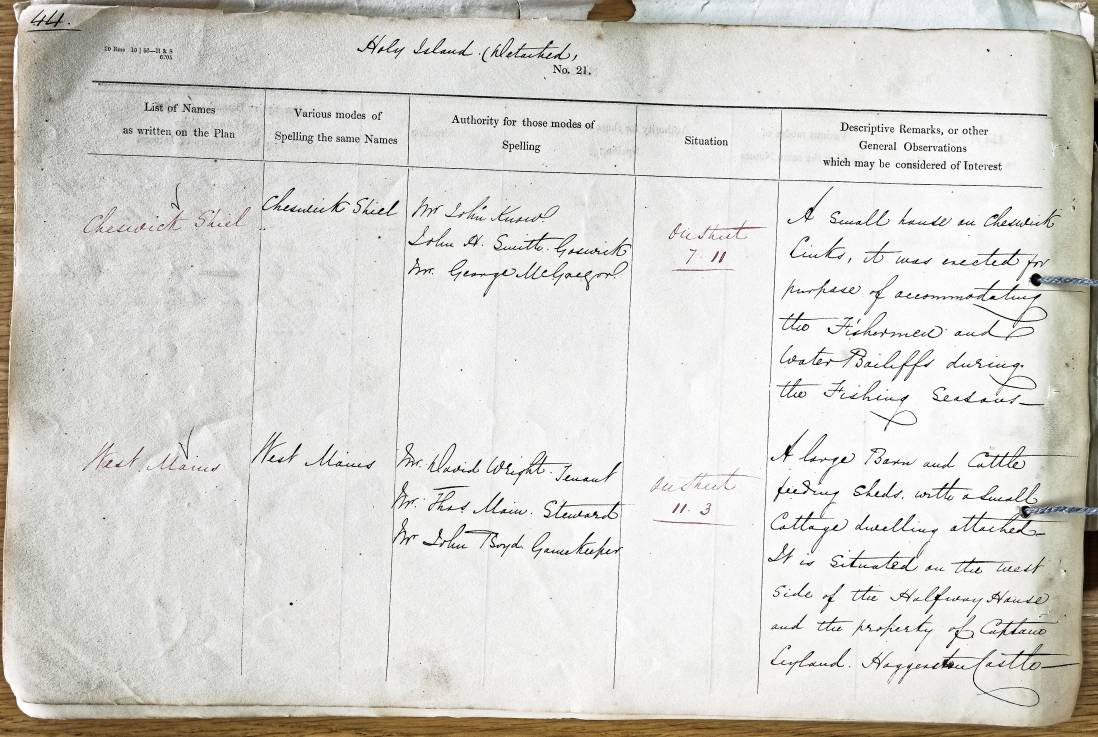 44.
20 Rms 10 | 56—H & S
6705
Holy Island. (Detached,
No. 21.
List of Names
as written on the Plan
Various modes of
Spelling the same Names
Authority for those modes of
Spelling
Situation
Descriptive Remarks, or other
General Observations
which may be considered of Interest
Cheswick Shiel
Cheswick Shiel
Mr John Knowl
John H. Smith. Goswick
Mr. George McGregor
On Sheet
7 11
A Small house on Cheswick
Links, it was erected for
purpose of accommodating
the Fishermen and
Water Bailiffs during
the Fishing Seasons—
West Mains
West Mains
Mr. David Wright. Tenant
Mr. Thos Main. Steward
Mr John Boyd. Gamekeeper
On Sheet
11. 3
A large Barn and Cattle
feeding Sheds. with a Small
Cottage dwelling attached—
It is Situated on the West
Side of the Halfway House
and the property of Captain
Leyland. Haggerston Castle—